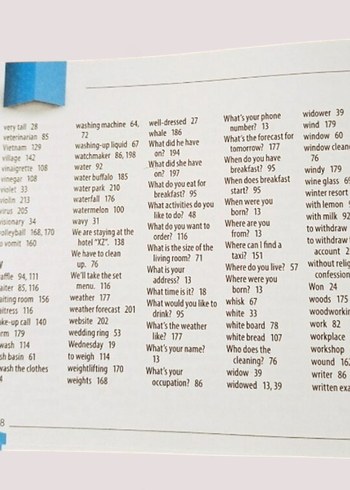 very tall 28
veterinarian 85
Vietnam 129
village 142
vinaigrette 108
vinegar 108
violet 33
violin 213
virus 205
visionary 34
volleyball 168, 170
to vomit 160
94, 111
85, 116
waiting room 156
116
wake-up call 140
179
wash 114
61
wash the clothes
washing machine 64,
72
washing-up liquid 67
watchmaker 86, 198
water 92
water buffalo 185
water park 210
waterfall 176
watermelon 100
wavy 31
We are staying at the
hotel "XZ". 138
We have to clean
up. 76
We'll take the set
menu. 116
weather 177
weather forecast 201
website 202
wedding ring 53
Wednesday 19
to weigh 114
weightlifting 170
weights 168
well-dressed 27
whale 186
What did he have
on? 194
What did she have
on? 197
What do you eat for
breakfast? 95
What activities do you
like to do? 48
What do you want to
order? 116
What is the size of the
living room? 71
What is your
address? 13
What time is it? 18
What would you like to
drink? 95
What's the weather
like? 177
What's your name?
13
What's your
occupation? 86
What's your phone
number? 13
What's the forecast for
tomorrow? 177
When do you have
breakfast? 95
When does breakfast
start? 95
When were you
born? 13
Where are you
from? 13
Where can I find a
taxi? 151
Where do you live? 57
Where were you
born? 13
whisk 67
white 33
white board 78
white bread 107
Who does the
cleaning? 76
widow 39
widowed 13, 39
widower 39
wind 179
window 60
window
76
windy 179
wine glass
winter resort
with lemon
with milk 92
to withdraw
to withdraw
account
without
confession
Won 24
woods 175
woodworking
work 82
workplace
workshop
wound
writer 86
written